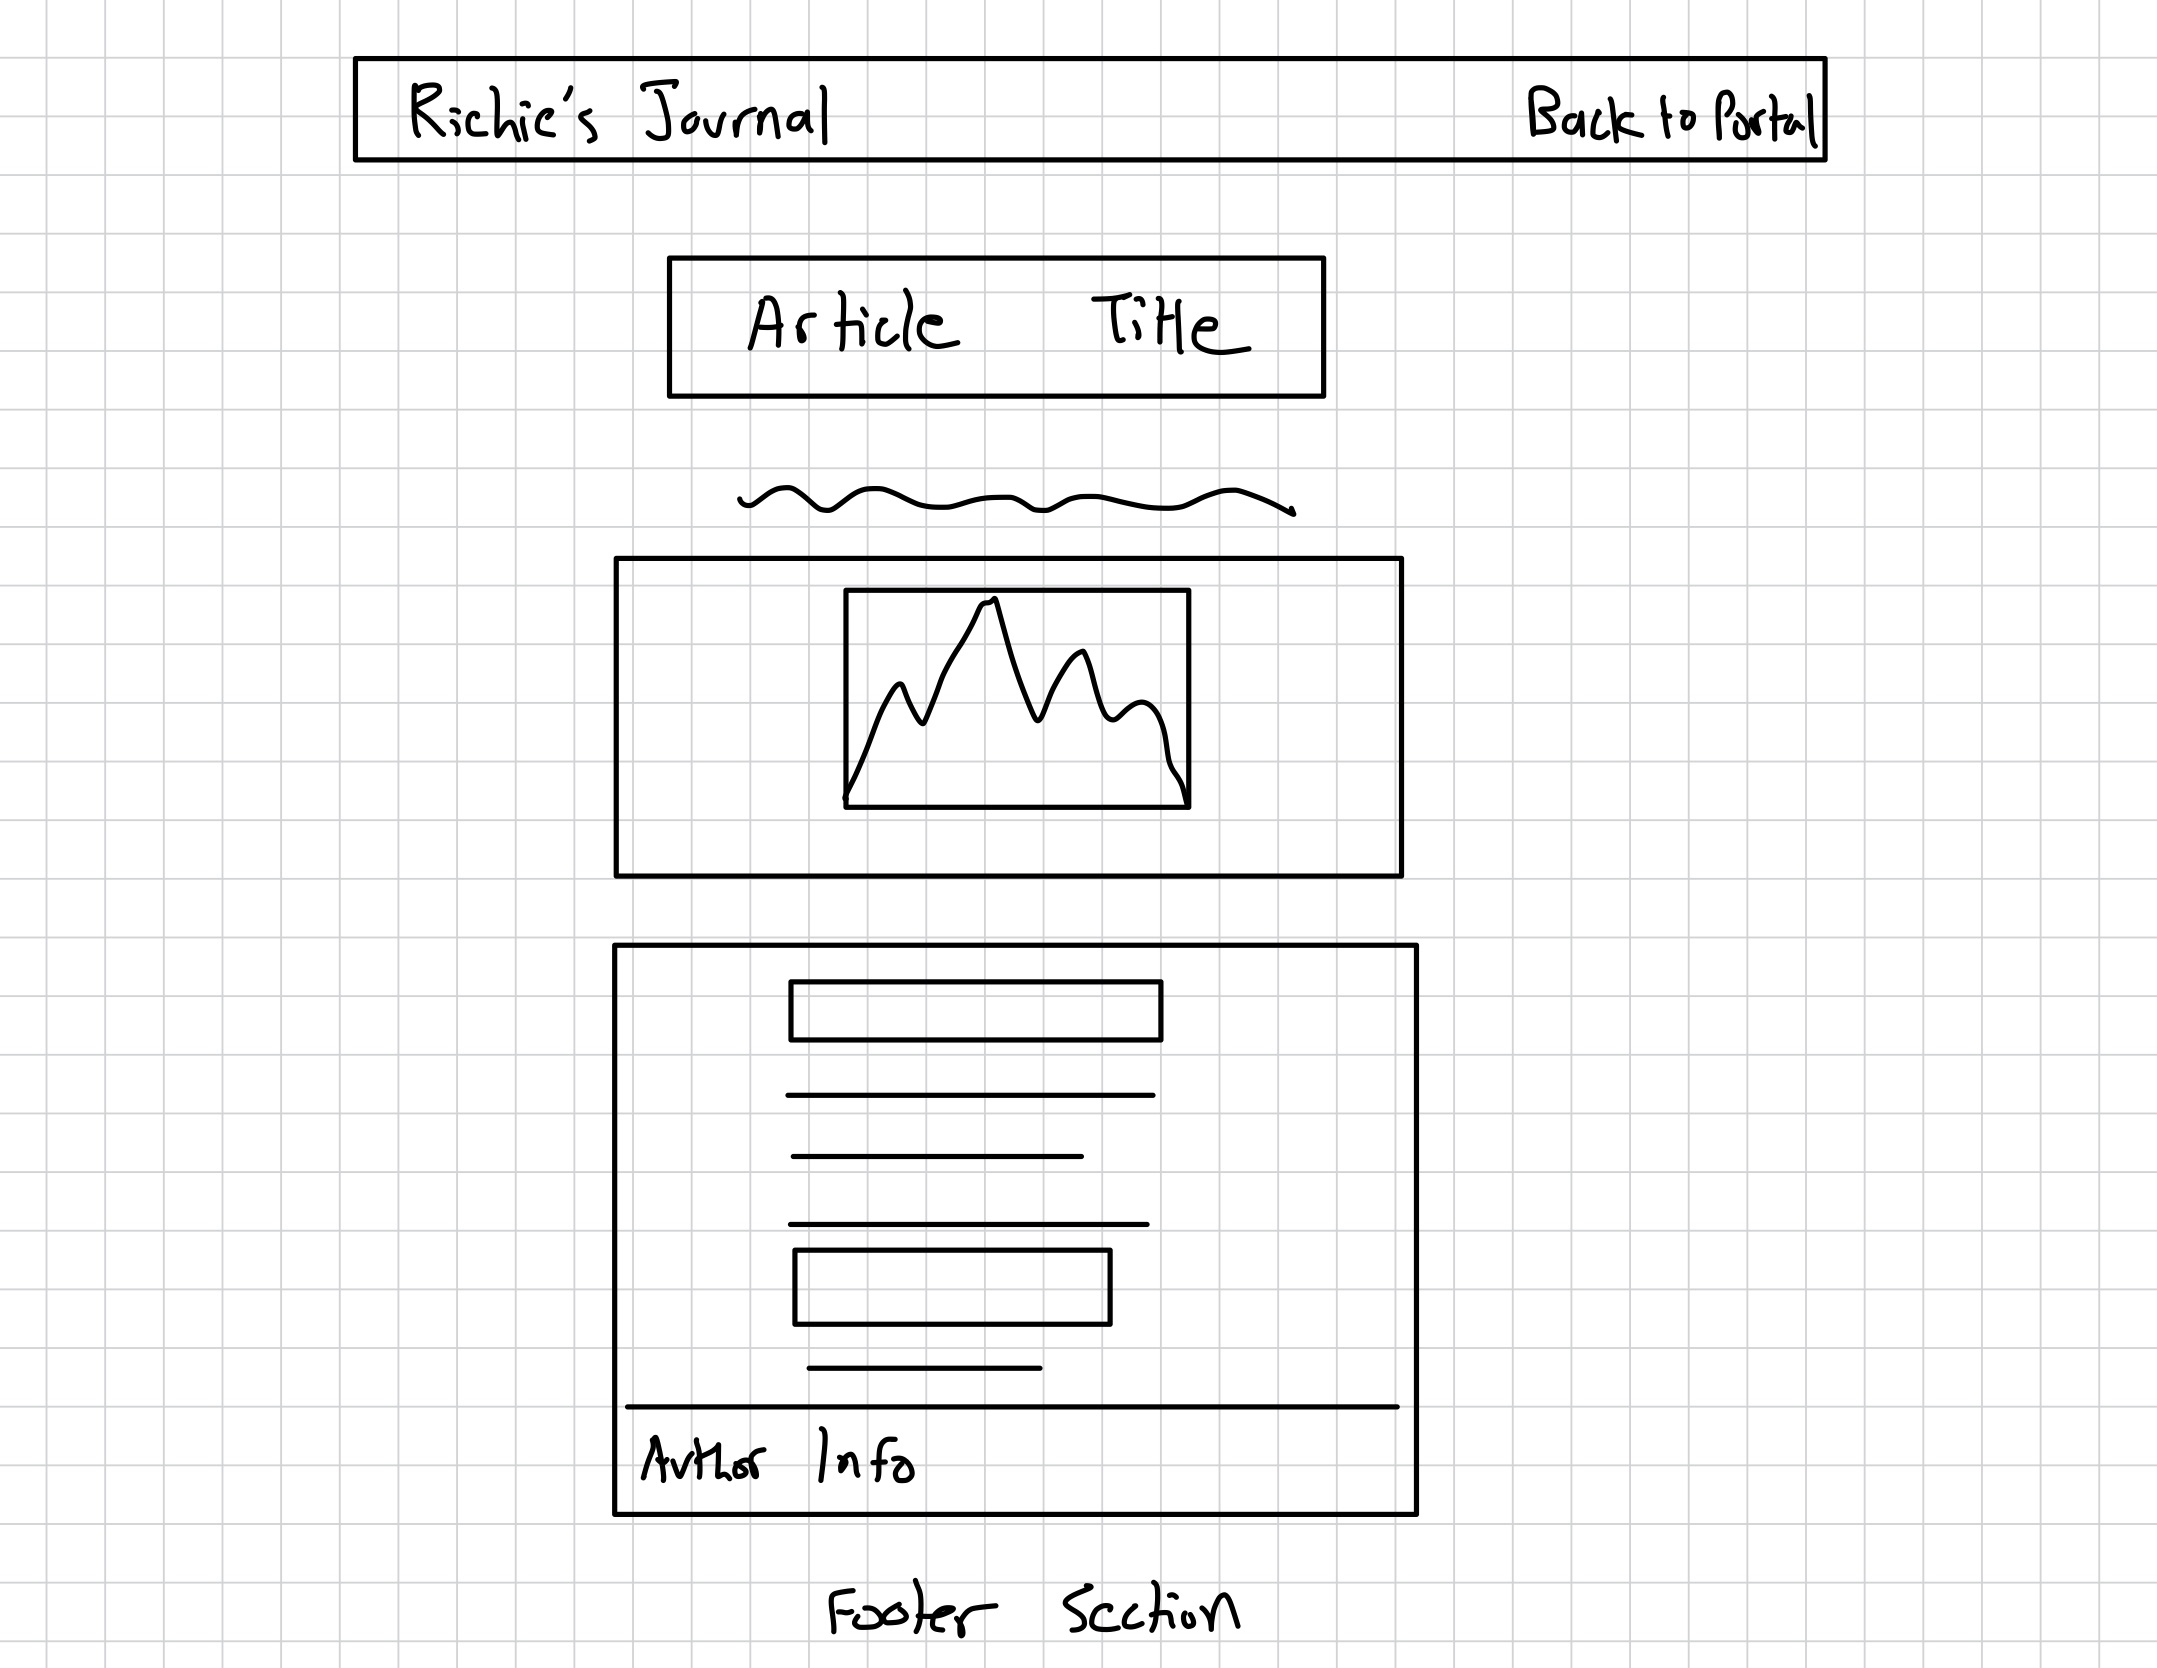 Richie's Journal
Back to Portal
Article Title
Author Info
Footer Section